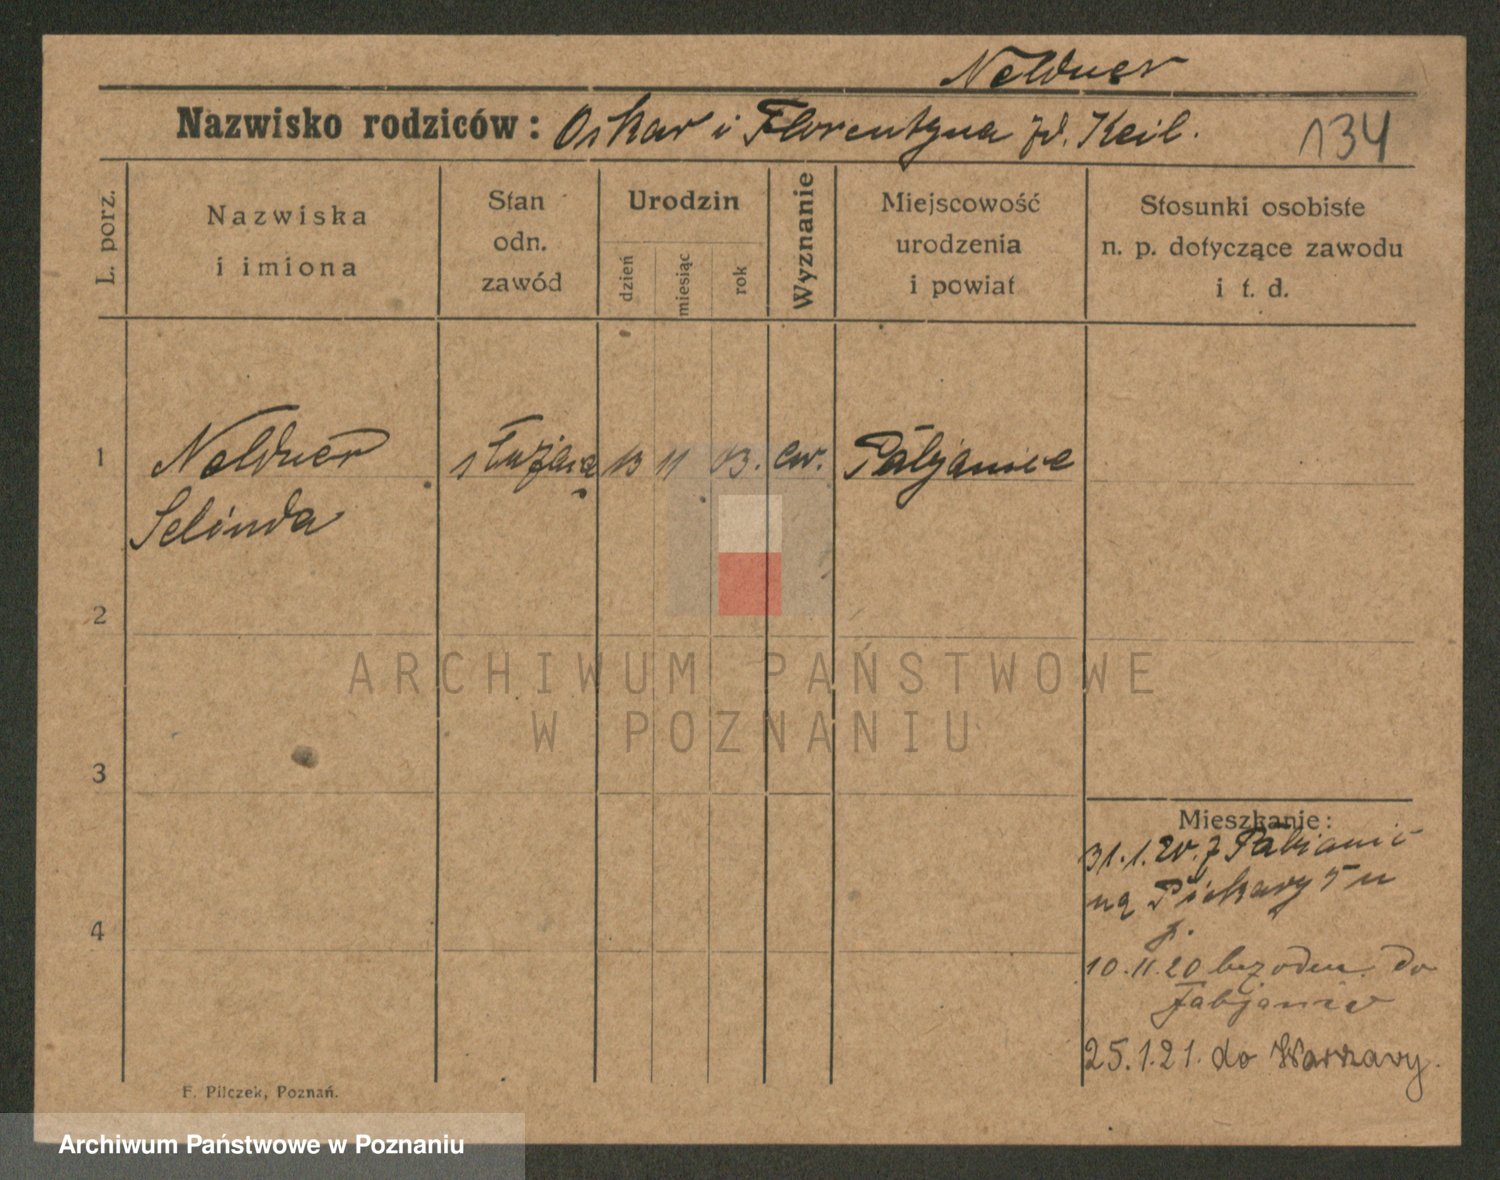 Neldner
Nazwisko rodziców: Oskar i Florentyna zd. Keil.
134
L. porz.
Nazwiska
i imiona
Stan
odn.
zawód
Urodzin
dzień
miesiąc
rok
Wyznanie
Miejscowość
urodzenia
i powiat
Stosunki osobiste
n. p. dotyczące zawodu
i t. d.
1 Neldner służąca 13 11 03. ew. Pabjanice
Selinda
2
ARCHIWUM PAŃSTWOWE
W POZNANIU
3
Mieszkanie:
31.1.20. z Pabianic
na Piekary 5 u
10.11.20 bez odm. do
Pabjanic
4
25.1.21. do Warszawy.
F. Pilczek, Poznań.
Archiwum Państwowe w Poznaniu